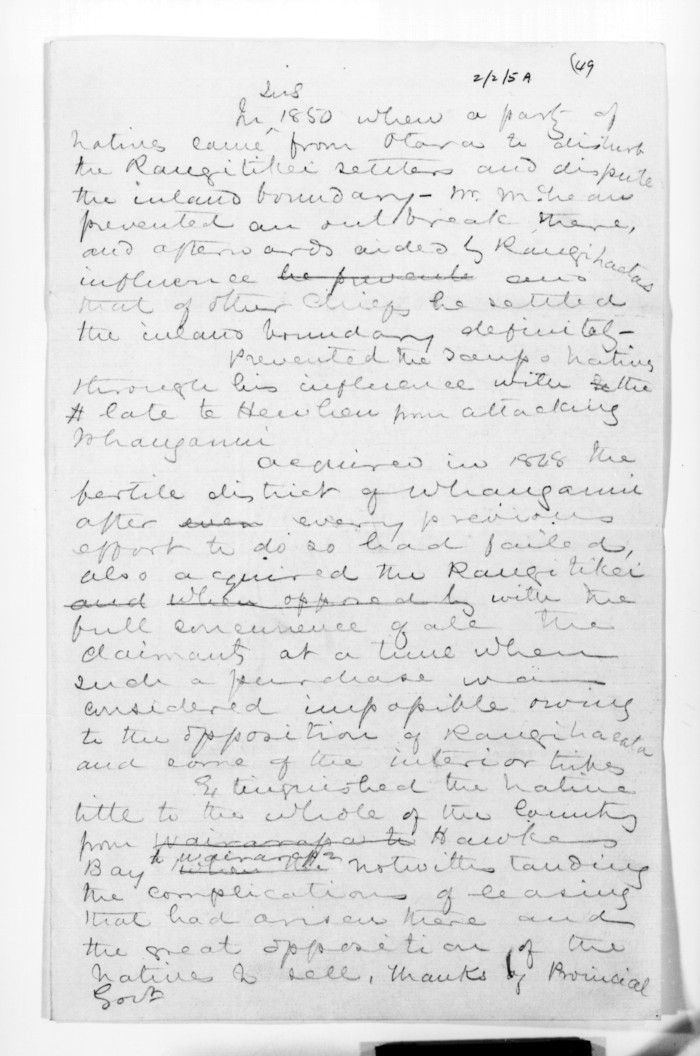 2/2/5A (49
In 1850 when a party of
natives came from Otara to disturb
the Rangitikei settlers and dispute
the inland boundary - Mr. McLean
prevented an outbreak there,
and afterwards aided by Rangihaetas
influence he prevente and
that of other Chiefs he settled
the inland boundary definitely -
Prevented the Taupo Natives
through his influence with the
# late te Heuheu from attacking
Whanganui
acquired in 1848 the
fertile district of Whanganui
after even every previous
effort to do so had failed,
also acquired the Rangitikei
and when opposed by with the
full concurrence of all the
claimants at a time when
such a purchase was
considered impossible owing
to the opposition of Rangihaeata
and some of the interior tribes
Extinguished the native
title to the whole of the Country
from Wairarapa to Hawkes
Bay to Wairarapa when the notwithstanding
the complications of leasing
that had arisen there and
the great opposition of the
natives to sell, thanks by Provincial
Govt